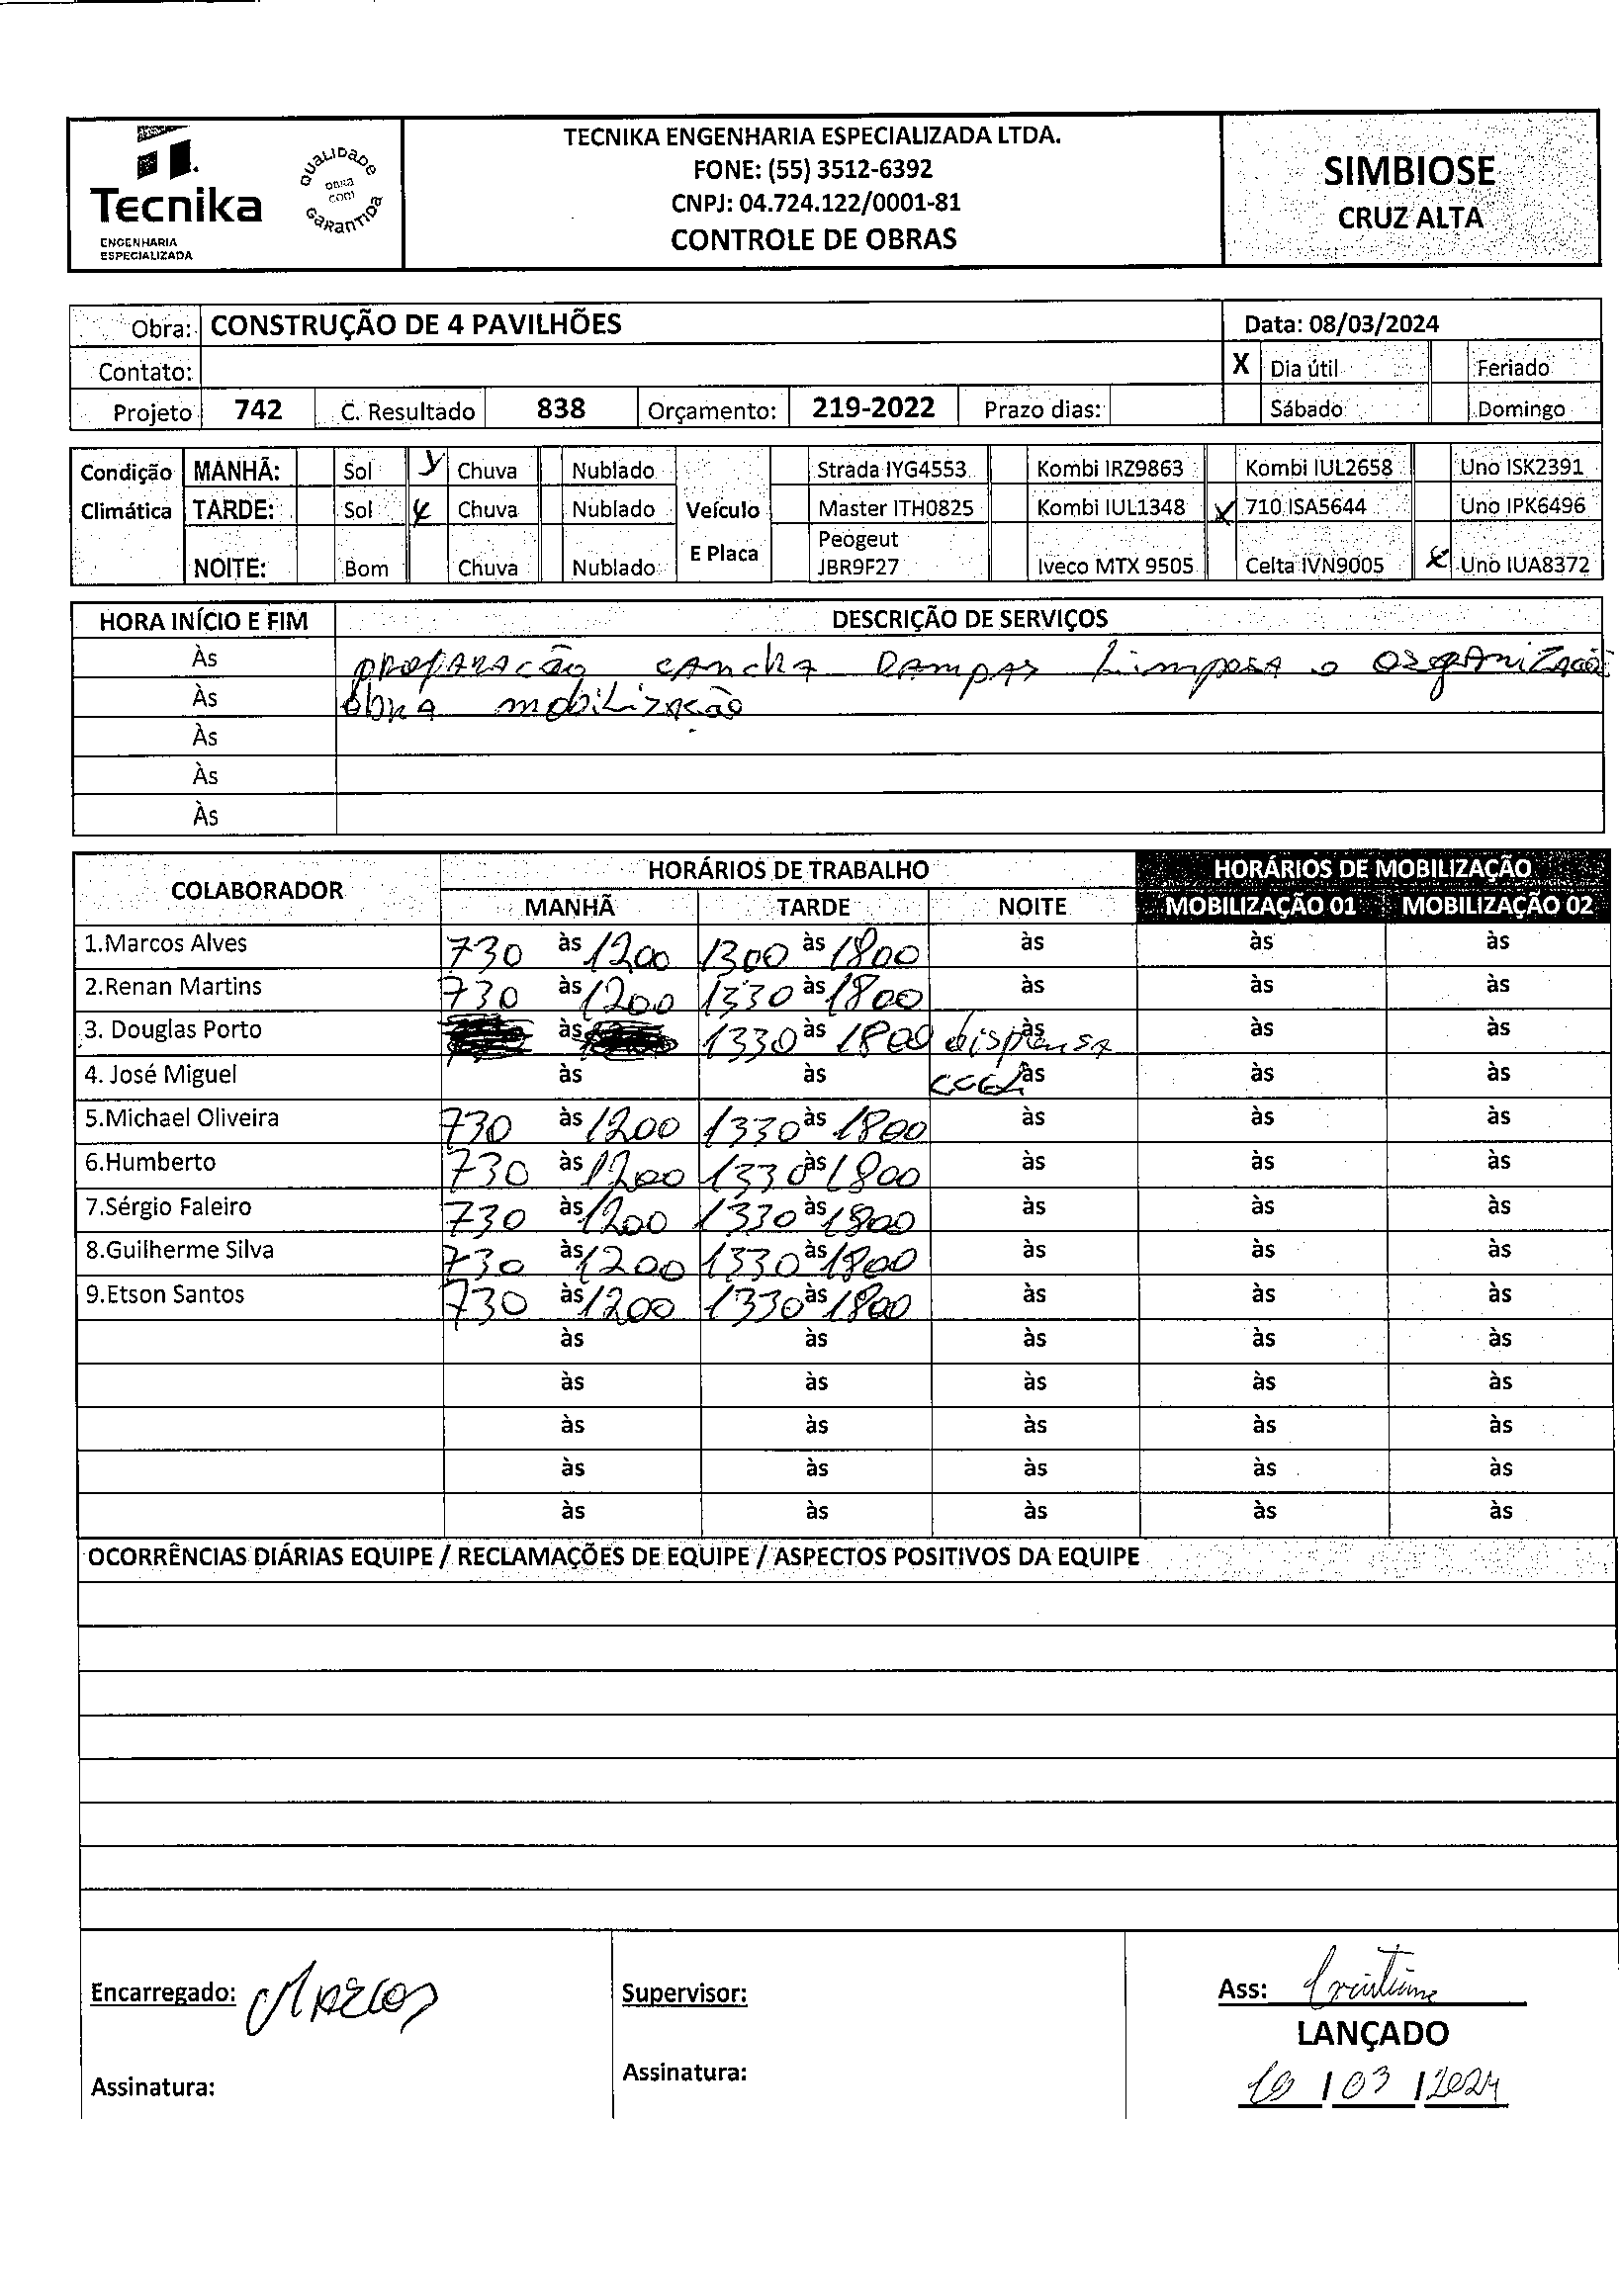 Tecnika
ENGENHARIA
ESPECIALIZADA
QUALIDADE
OBRA
COM
GARANTIDA
TECNIKA ENGENHARIA ESPECIALIZADA LTDA.
FONE: (55) 3512-6392
CNPJ: 04.724.122/0001-81
CONTROLE DE OBRAS
SIMBIOSE
CRUZ ALTA
Obra: CONSTRUÇÃO DE 4 PAVILHÕES Data: 08/03/2024
Contato: X Dia útil Feriado
Projeto 742 C. Resultado 838 Orçamento: 219-2022 Prazo dias: Sábado Domingo
Condição MANHÃ: Sol X Chuva Nublado Strada IYG4553 Kombi IRZ9863 Kombi IUL2658 Uno ISK2391
Climática TARDE: Sol X Chuva Nublado Veículo Master ITH0825 Kombi IUL1348 X 710 ISA5644 Uno IPK6496
NOITE: Bom Chuva Nublado E Placa Peogeut JBR9F27 Iveco MTX 9505 Celta IVN9005 X Uno IUA8372
HORA INÍCIO E FIM DESCRIÇÃO DE SERVIÇOS
Às preparação cancha rampas limpesa e organização
Às obra mobilização
Às
Às
Às
COLABORADOR HORÁRIOS DE TRABALHO HORÁRIOS DE MOBILIZAÇÃO
MANHÃ TARDE NOITE MOBILIZAÇÃO 01 MOBILIZAÇÃO 02
1.Marcos Alves 730 às 1200 1300 às 1800 às às às
2.Renan Martins 730 às 1200 1330 às 1800 às às às
3. Douglas Porto às 1330 às 1800 dispensa às às às
4. José Miguel às às às às às
5.Michael Oliveira 730 às 1200 1330 às 1800 às às às
6.Humberto 730 às 1200 1330 às 1800 às às às
7.Sérgio Faleiro 730 às 1200 1330 às 1800 às às às
8.Guilherme Silva 730 às 1200 1330 às 1800 às às às
9.Etson Santos 730 às 1200 1330 às 1800 às às às
às às às às às
às às às às às
às às às às às
às às às às às
às às às às às
OCORRÊNCIAS DIÁRIAS EQUIPE / RECLAMAÇÕES DE EQUIPE / ASPECTOS POSITIVOS DA EQUIPE
Encarregado: Marcos Supervisor: Ass: Cristiane
LANÇADO
Assinatura: Assinatura: /03/2024